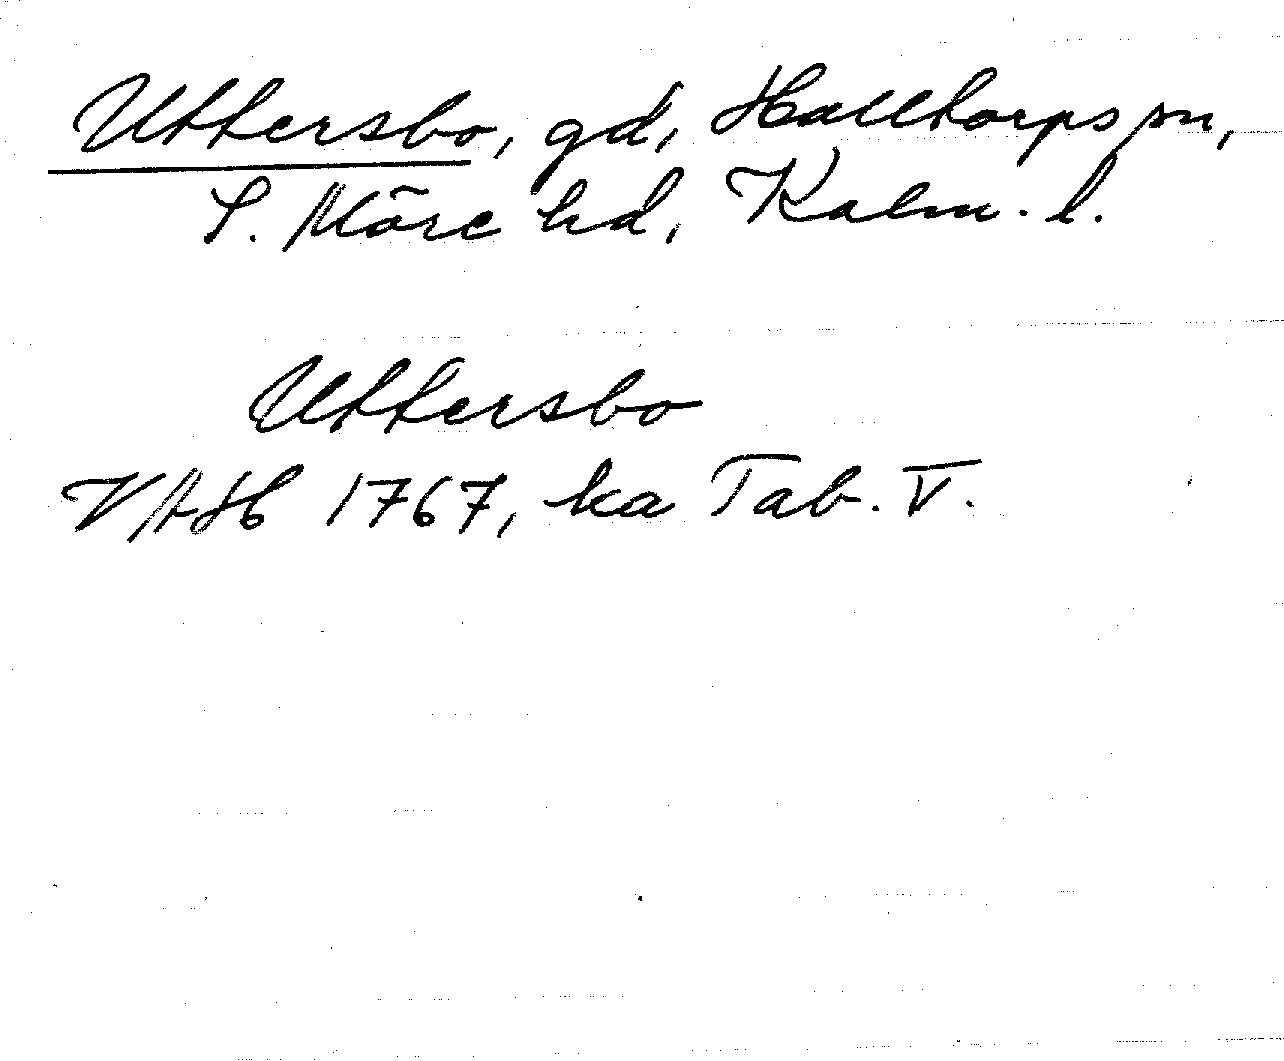 Uttersbo, gd, Halltorps sn,
S. Möre hd, Kalm. l.
Uttersbo
VAH 1767, ka Tab. V.